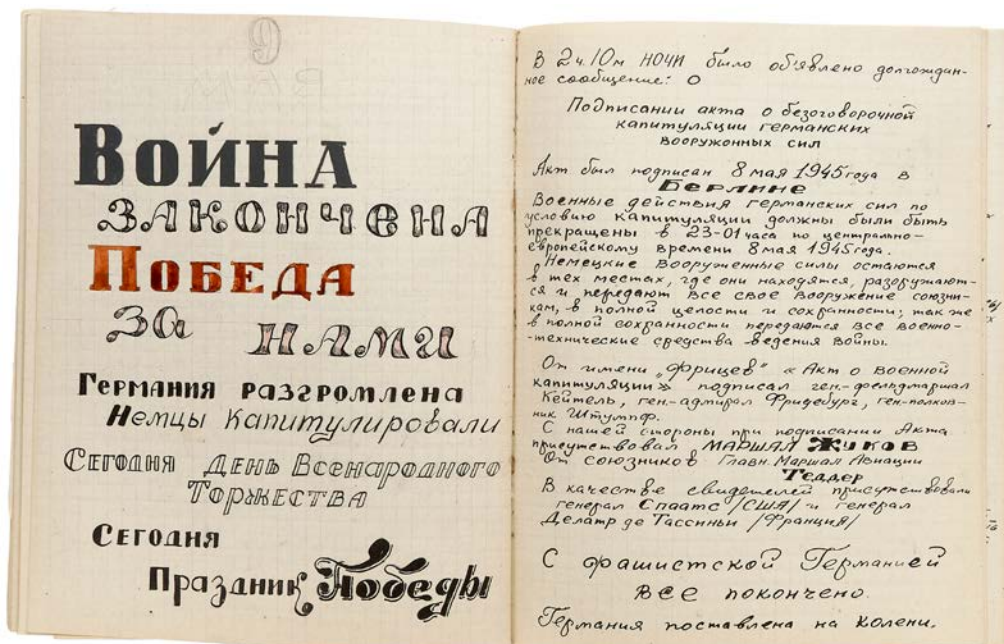 9
ВОЙНА
ЗАКОНЧЕНА
ПОБЕДА
ЗА НАМИ
ГЕРМАНИЯ РАЗГРОМЛЕНА
НЕМЦЫ КАПИТУЛИРОВАЛИ
СЕГОДНЯ ДЕНЬ ВСЕНАРОДНОГО
ТОРЖЕСТВА
СЕГОДНЯ
ПРАЗДНИК ПОБЕДЫ
В 2ч.10м НОЧИ было об'явлено долгождан-
ное сообщение: О
Подписании акта о безоговорочной
капитуляции германских
вооружонных сил
Акт был подписан 8 мая 1945 года в
БЕРЛИНЕ
Военные действия германских сил по
условию капитуляции должны были быть
прекращены в 23-01 часа по центрально-
европейскому времени 8 мая 1945 года.
Немецкие вооруженные силы остаются
в тех местах, где они находятся, разоружают-
ся и передают все свое вооружение союзни-
кам, в полной целости и сохранности; так же
в полной сохранности передаются все военно-
-технические средства ведения войны.
От имени „фрицев" «Акт о военной
капитуляции» подписал ген.-фельдмаршал
Кейтель, ген.-адмирал Фридебург, ген.-полков-
ник Штумпф.
С нашей стороны при подписании Акта
присутствовал МАРШАЛ ЖУКОВ
От союзников Главн. Маршал Авиации
ТЕДДЕР
В качестве свидетелей присутствовали
генерал Спаатс /США/ и генерал
Делатр де Тассиньи /Франция/
С фашистской Германией
все покончено.
Германия поставлена на колени.